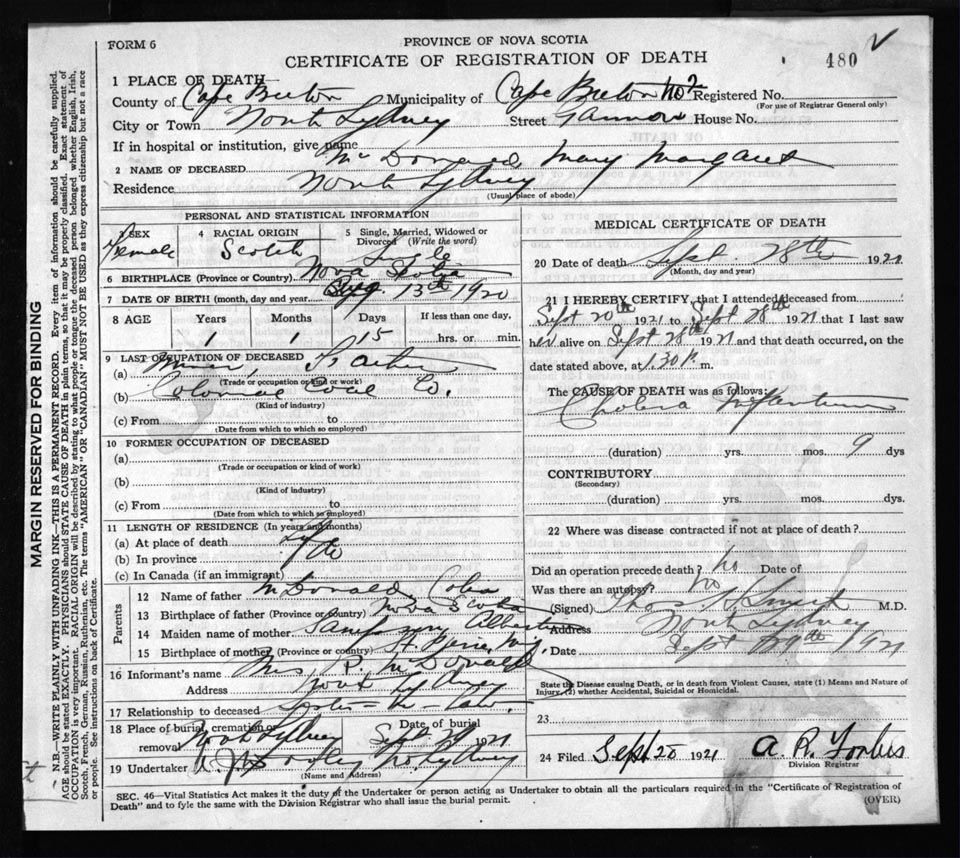 FORM 6
PROVINCE OF NOVA SCOTIA
CERTIFICATE OF REGISTRATION OF DEATH
480
1 PLACE OF DEATH—
County of Cape Breton Municipality of Cape Breton No 2 Registered No.
(For use of Registrar General only)
City or Town North Sydney Street Gannon House No.
If in hospital or institution, give name
2 NAME OF DECEASED McDonald, Mary Margaret
Residence North Sydney
(Usual place of abode)
PERSONAL AND STATISTICAL INFORMATION
3 SEX Female
4 RACIAL ORIGIN Scotch
5 Single, Married, Widowed or Divorced (Write the word) Single
6 BIRTHPLACE (Province or Country) Nova Scotia
7 DATE OF BIRTH (month, day and year) Aug. 13th 1920
8 AGE Years Months Days If less than one day,
1 1 15 hrs. or min.
9 LAST OCCUPATION OF DECEASED
(a) Miner, Father
(Trade or occupation or kind or work)
(b) Colonial Coal Co.
(Kind of industry)
(c) From to
(Date from which to which so employed)
10 FORMER OCCUPATION OF DECEASED
(a)
(Trade or occupation or kind of work)
(b)
(Kind of industry)
(c) From to
(Date from which to which so employed)
11 LENGTH OF RESIDENCE (In years and months)
(a) At place of death Life
(b) In province do
(c) In Canada (if an immigrant)
Parents
12 Name of father McDonald,
13 Birthplace of father (Province or Country) Nova Scotia
14 Maiden name of mother Sampson,
15 Birthplace of mother (Province or country)
16 Informant's name Mrs. R. McDonald
Address North Sydney
17 Relationship to deceased Sister-in-law.
18 Place of burial, cremation or removal North Sydney Date of burial Sept 29 1921
19 Undertaker No. Sydney
(Name and Address)
MEDICAL CERTIFICATE OF DEATH
20 Date of death Sept. 28th 1921
(Month, day and year)
21 I HEREBY CERTIFY, that I attended deceased from
Sept 20th 1921 to Sept 28th 1921 that I last saw
her alive on Sept 28th 1921 and that death occurred, on
date stated above, at 1.30 P. m.
The CAUSE OF DEATH was as follows:
Cholera Infantum
(duration) yrs. mos. 9 dys
CONTRIBUTORY
(Secondary)
(duration) yrs. mos. dys.
22 Where was disease contracted if not at place of death?
Did an operation precede death? no Date of
Was there an autopsy? no
(Signed) M.D.
Address North Sydney
Date Sept 1921
State the Disease causing Death, or in death from Violent Causes, state (1) Means and Nature of
Injury, (2) whether Accidental, Suicidal or Homicidal.
23
24 Filed Sept 28 1921 A. R. Forbes
Division Registrar
SEC. 46—Vital Statistics Act makes it the duty of the Undertaker or person acting as Undertaker to obtain all the particulars required in the "Certificate of Registration of
Death" and to fyle the same with the Division Registrar who shall issue the burial permit.
(OVER)
MARGIN RESERVED FOR BINDING
N.B.—WRITE PLAINLY WITH UNFADING INK—THIS IS A PERMANENT RECORD. Every item of information should be carefully supplied.
AGE should be stated EXACTLY. PHYSICIANS should STATE CAUSE OF DEATH in plain terms, so that it may be properly classified. Exact statement of
OCCUPATION is very important. RACIAL ORIGIN will be described by stating to what people or tongue the deceased person belonged whether English, Irish,
Scotch, French, German, Russian, Ruthenian, etc. The terms "AMERICAN" OR "CANADIAN" MUST NOT BE USED as they express citizenship but not a race
or people. See instructions on back of Certificate.